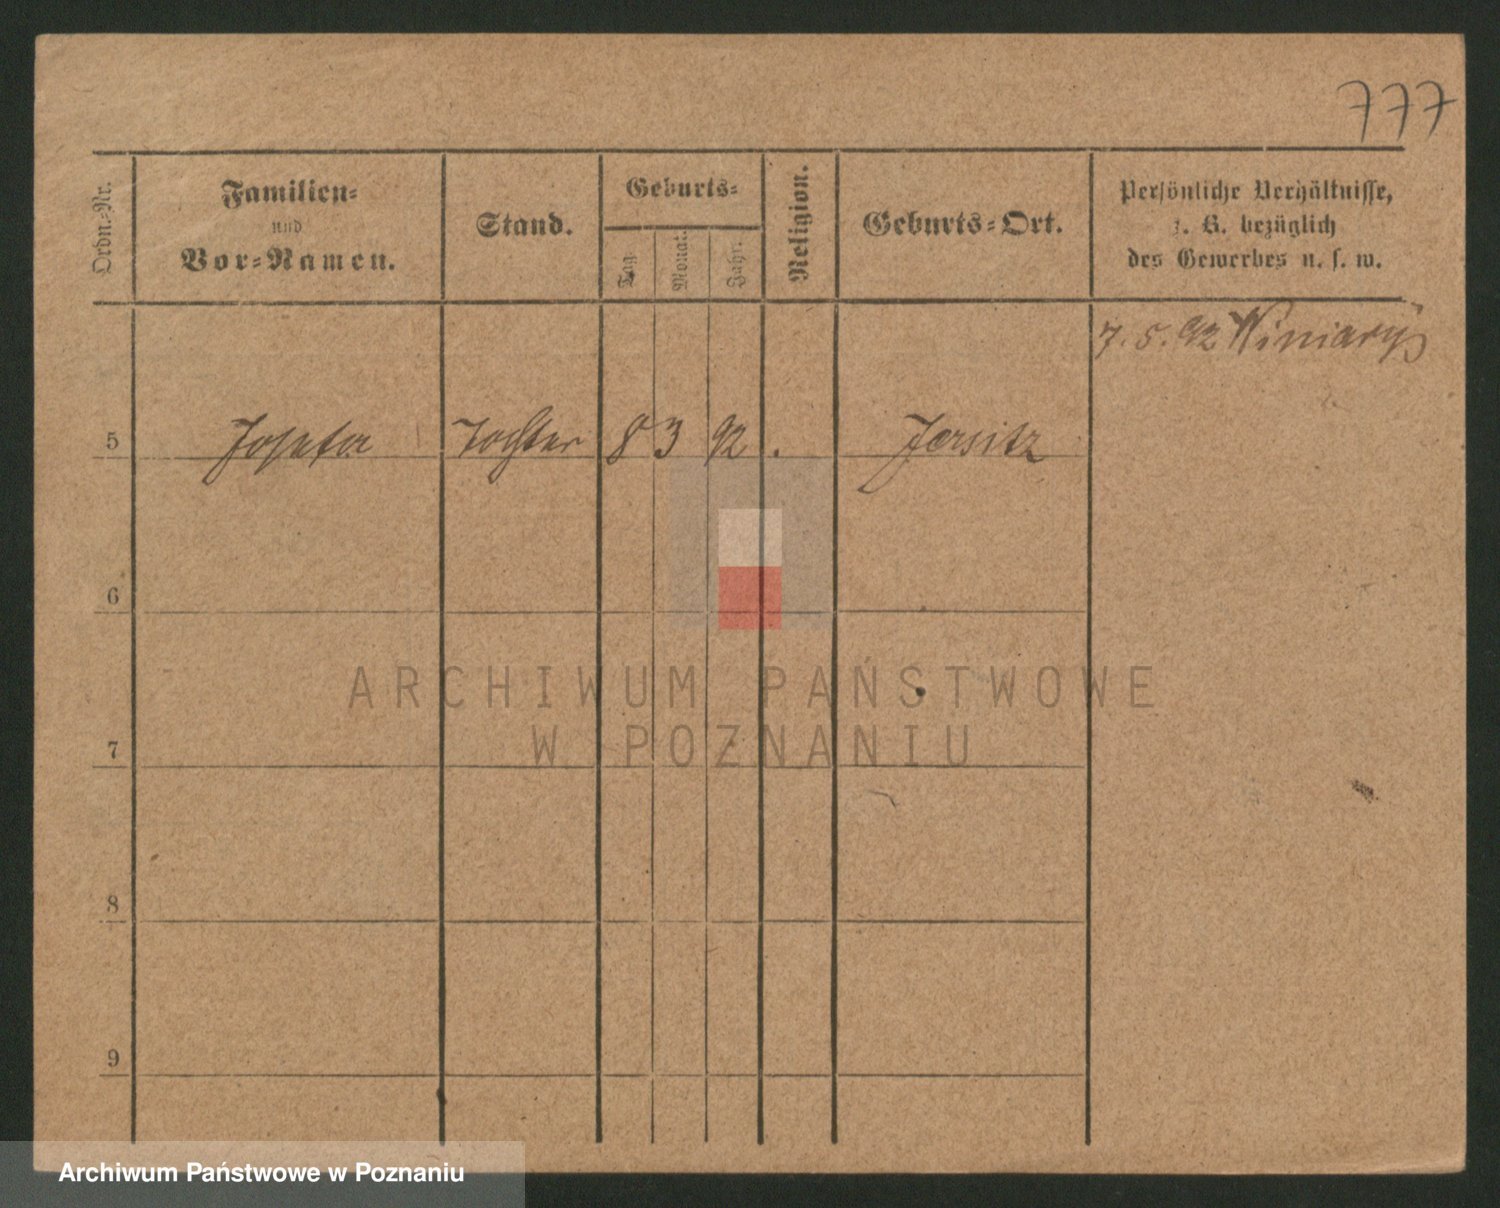 777
Ordn.-Nr.
Familien-
und
Vor-Namen.
Stand.
Geburts-
Tag.
Monat.
Jahr.
Religion.
Geburts-Ort.
Persönliche Verhältnisse,
z. B. bezüglich
des Gewerbes u. s. w.
7. 5. 92 Winiary
5 Josefa Tochter 8 3 92 . Jersitz
6
7
8
9
ARCHIWUM PAŃSTWOWE
W POZNANIU
Archiwum Państwowe w Poznaniu